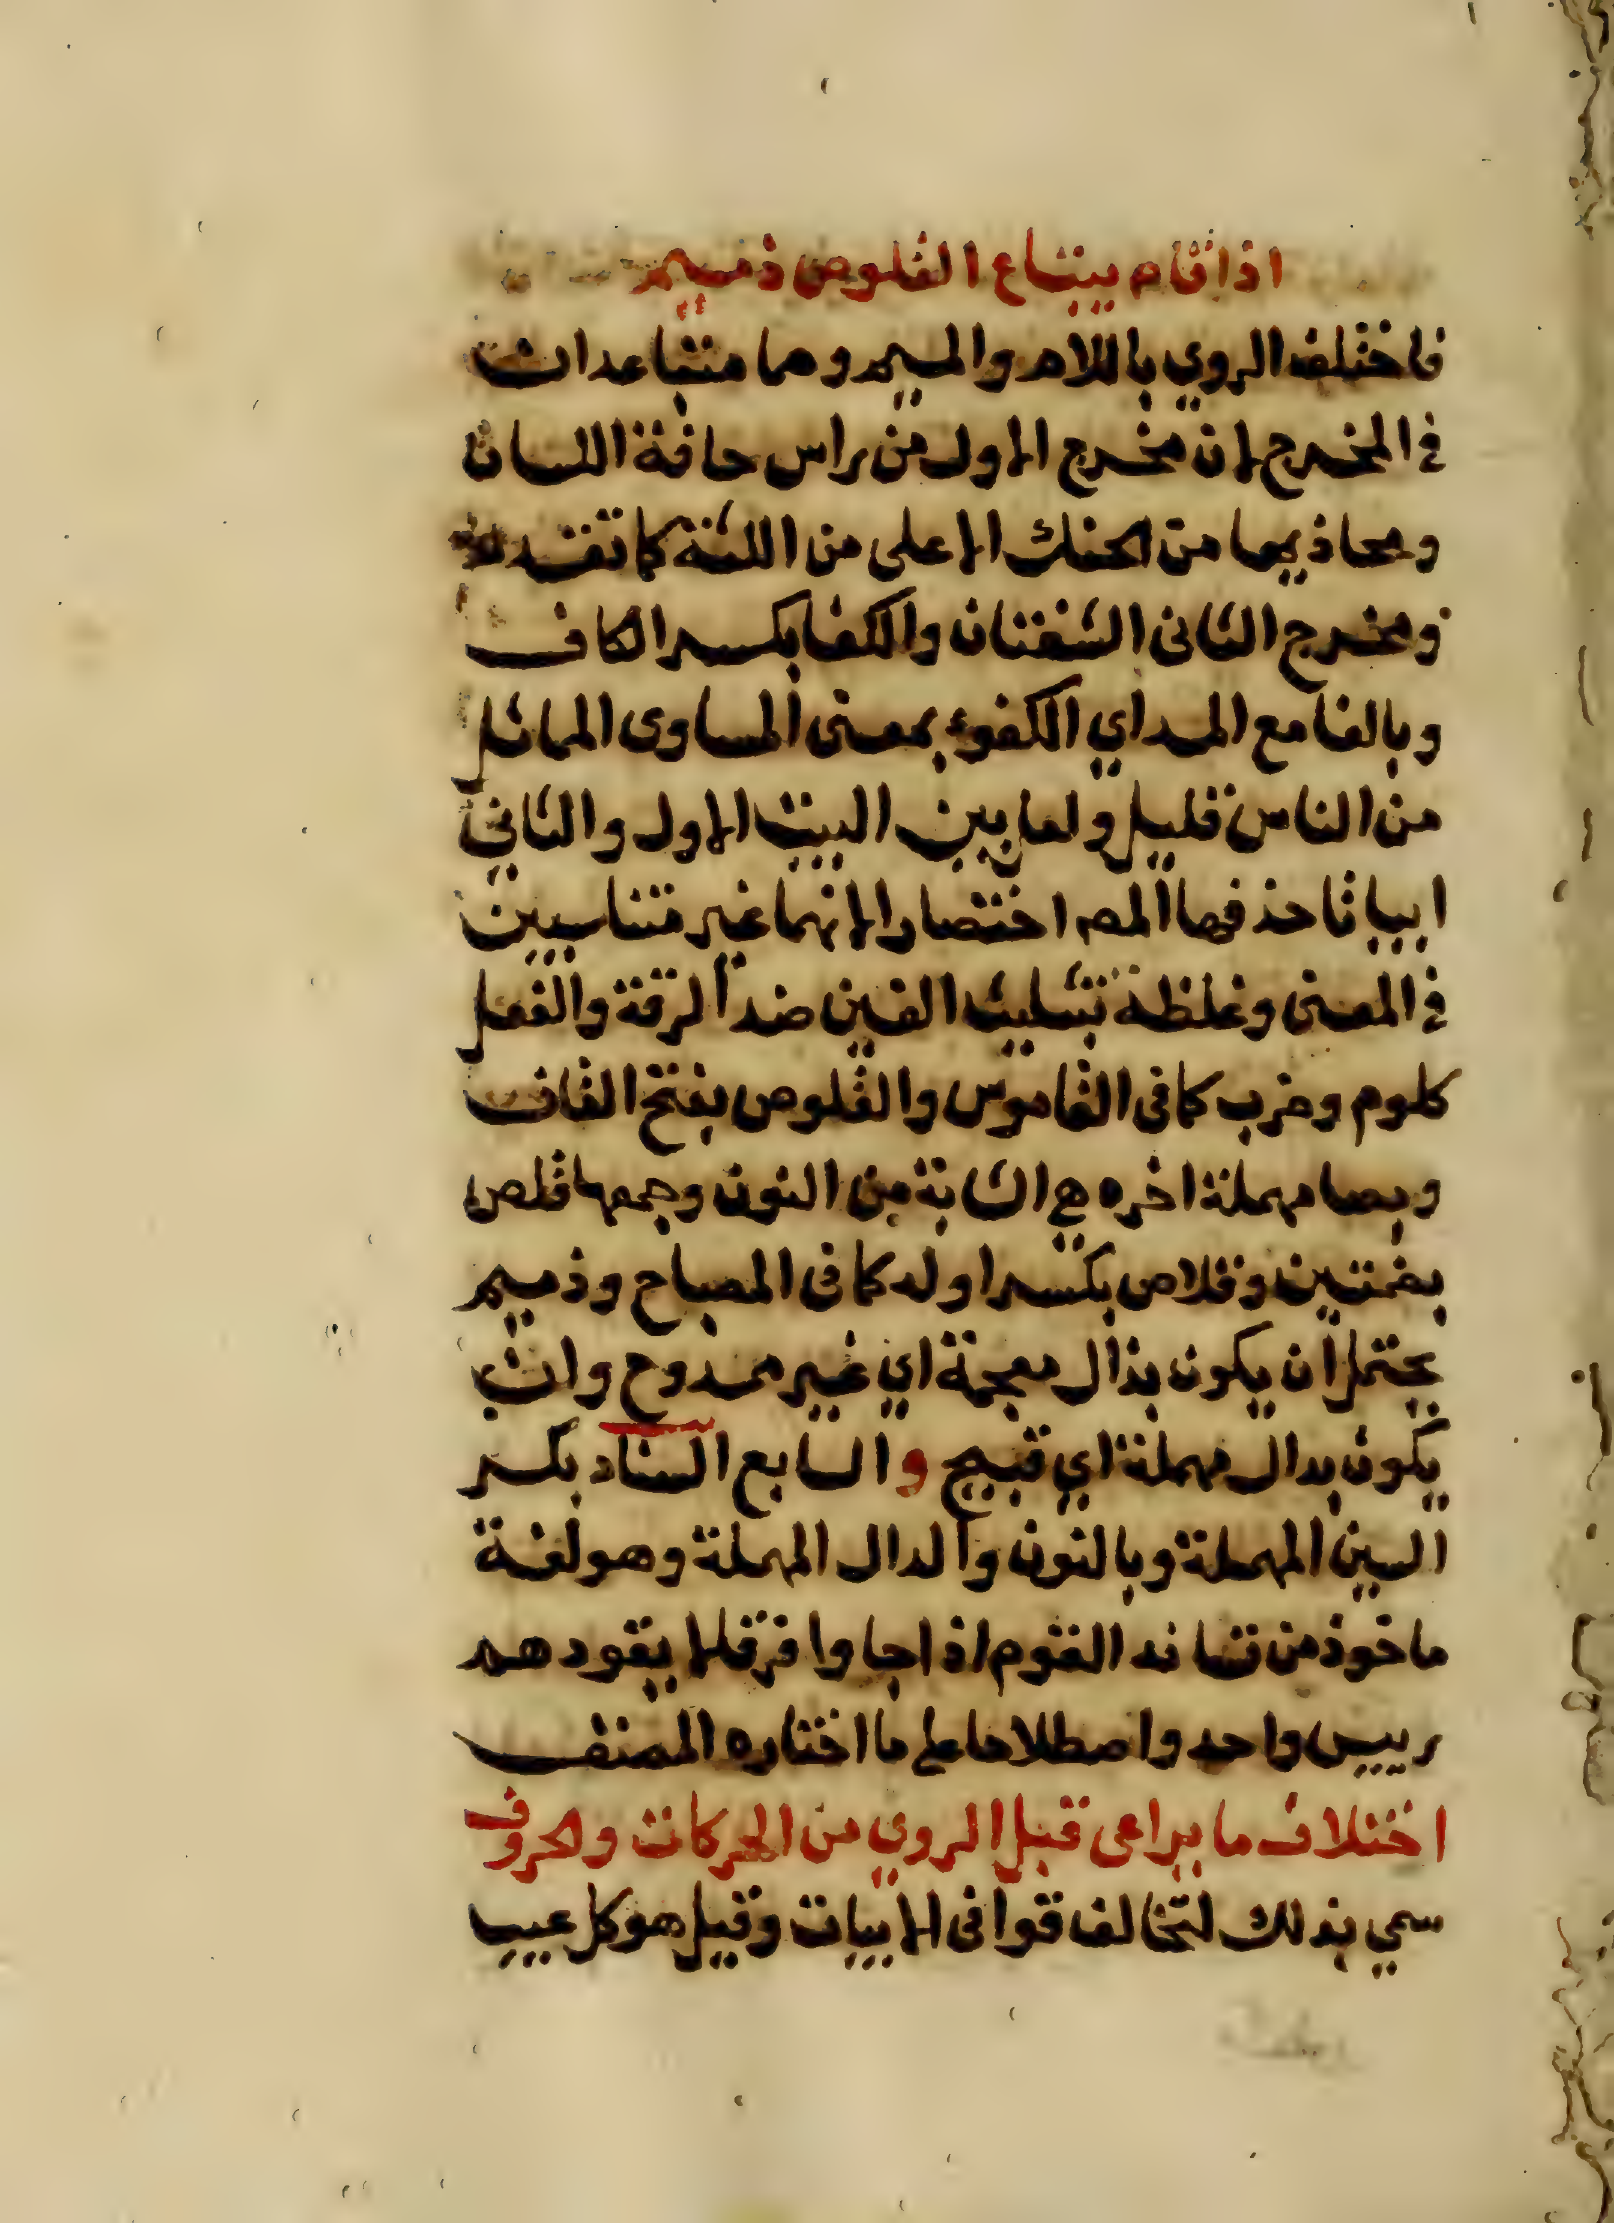 اذا قام يبتاع القلوص ذميم
فاختلف الروي باللام والميم وهما متباعدان
في المخرج لان مخرج الاول من راس حافة اللسان
ومحاذيها من الحنك الاعلى من اللثة كما تقدم
ومخرج الثاني الشفتان والكفا بكسر الكاف
وبالفا مع المد اي الكفوء بمعنى المساوى المماثل
من الناس قليل ولعل بين البيت الاول والثاني
ابياتا حذفها المص اختصارا لانهما غير متناسبين
في المعنى وغلظة بتثليث الغين ضد الرقة والفعل
كلوم وضرب كما فى القاموس والقلوص بفتح القاف
وبصا مهملة اخره هي الشابة من النوق وجمعها قلص
بضمتين وقلاص بكسر اوله كما فى المصباح وذميم
يحتمل ان يكون بذال معجمة اي غير ممدوح وان
يكون بدال مهملة اي قبيح والسابع السناد بكسر
السين المهملة وبالنون والدال المهملة وهو لغة
ماخوذ من تساند القوم اذا جاوا فرقا لا يقودهم
رييس واحد واصطلاحا على ما اختاره المصنف
اختلاف ما يراعى قبل الروي من الحركات والحروف
سمي بذلك لتخالف قوافى الابيات وقيل هو كل عيب